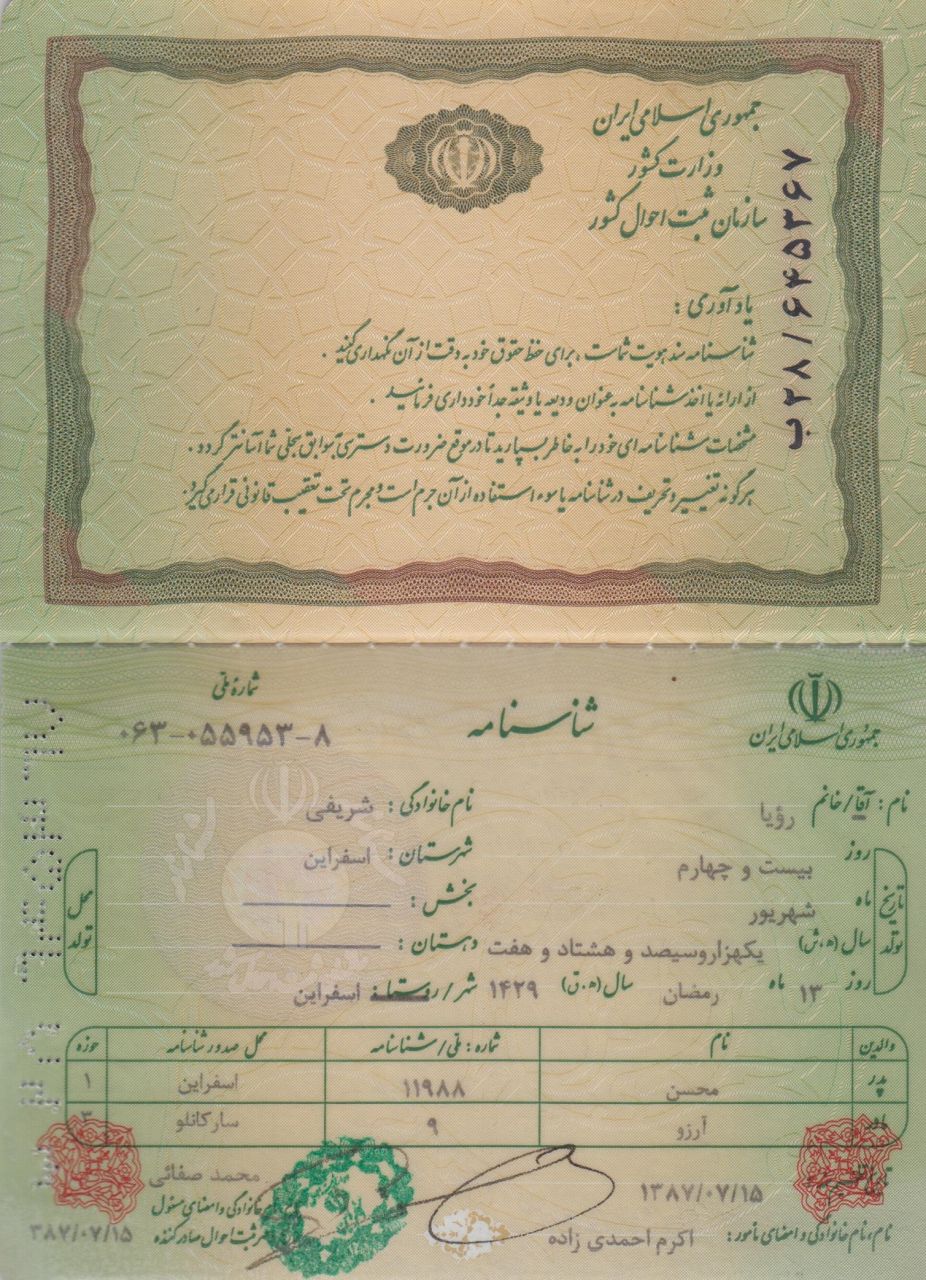 جمهوری اسلامی ایران
وزارت کشور
سازمان ثبت احوال کشور
ب۲۸/۶۴۵۳۶۷
یادآوری :
شناسنامه سند هویت شماست ، برای حفظ حقوق خود به دقت از آن نگهداری کنید .
از ارائه یا اخذ شناسنامه به عنوان ودیعه یا وثیقه جداً خودداری فرمائید .
مشخصات شناسنامه ای خود را به خاطر بسپارید تا در موقع ضرورت دسترسی به سوابق سجلی شما آسانتر گردد .
هرگونه تغییر و تحریف در شناسنامه یا سوء استفاده از آن جرم است و مجرم تحت تعقیب قانونی قرار می گیرد .
جمهوری اسلامی ایران
شناسنامه
شماره ملی
۰۶۳-۰۵۵۹۵۳-۸
نام : آقا/خانم رؤیا نام خانوادگی : شریفی
تاریخ تولد
روز بیست و چهارم
ماه شهریور
سال (ه.ش) یکهزاروسیصد و هشتاد و هفت
روز ۱۳ ماه رمضان سال (ه.ق) ۱۴۲۹
محل تولد
شهرستان : اسفراین
بخش :
دهستان :
شهر/روستا : اسفراین
والدین نام شماره : ملی/شناسنامه محل صدور شناسنامه حوزه
پدر محسن ۱۱۹۸۸ اسفراین ۱
مادر آرزو ۹ سارکانلو ۳
۱۳۸۷/۰۷/۱۵
نام،نام خانوادگی و امضای مامور : اکرم احمدی زاده
محمد صفائی
نام خانوادگی و امضای مسئول
ثبت احوال صادر کننده
۳۸۷/۰۷/۱۵